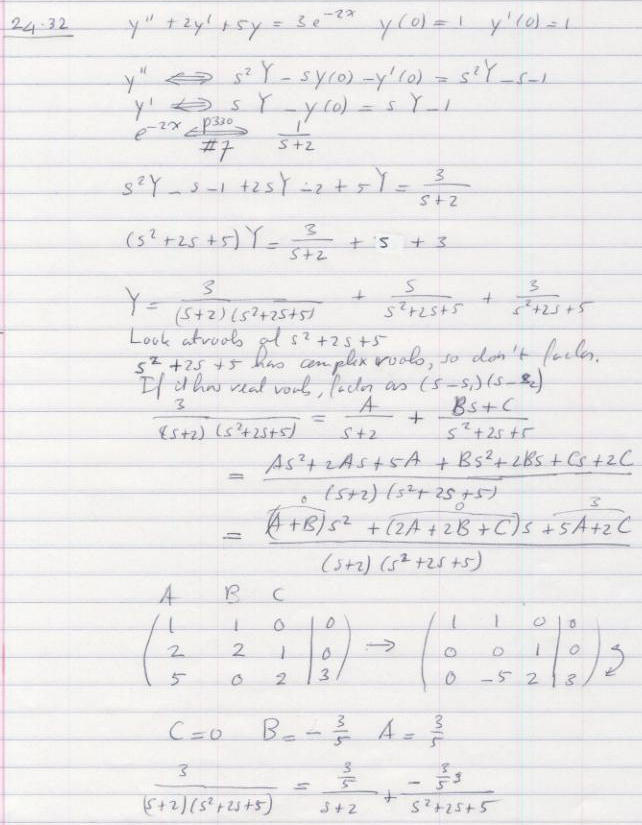 24.32 y'' + 2y' + 5y = 3e^{-2x} y(0) = 1 y'(0) = 1
y'' ⟺ s²Y - sy(0) - y'(0) = s²Y - s - 1
y' ⟺ sY - y(0) = sY - 1
e^{-2x} ⟺ p330 #7 1/(s+2)
s²Y - s - 1 + 2sY - 2 + 5Y = 3/(s+2)
(s² + 2s + 5)Y = 3/(s+2) + s + 3
Y = 3/((s+2)(s²+2s+5)) + s/(s²+2s+5) + 3/(s²+2s+5)
Look at roots of s² + 2s + 5
s² + 2s + 5 has complex roots, so don't factor.
If it has real roots, factor as (s-s₁)(s-s₂)
3/((s+2)(s²+2s+5)) = A/(s+2) + (Bs+C)/(s²+2s+5)
= (As² + 2As + 5A + Bs² + 2Bs + Cs + 2C)/((s+2)(s²+2s+5))
0 0 3
= ((A+B)s² + (2A+2B+C)s + 5A+2C)/((s+2)(s²+2s+5))
A B C
( 1 1 0 | 0 ) ⇒ ( 1 1 0 | 0 )
( 2 2 1 | 0 ) ( 0 0 1 | 0 )
( 5 0 2 | 3 ) ( 0 -5 2 | 3 )
C = 0 B = -3/5 A = 3/5
3/((s+2)(s²+2s+5)) = (3/5)/(s+2) + (-3/5 s)/(s²+2s+5)